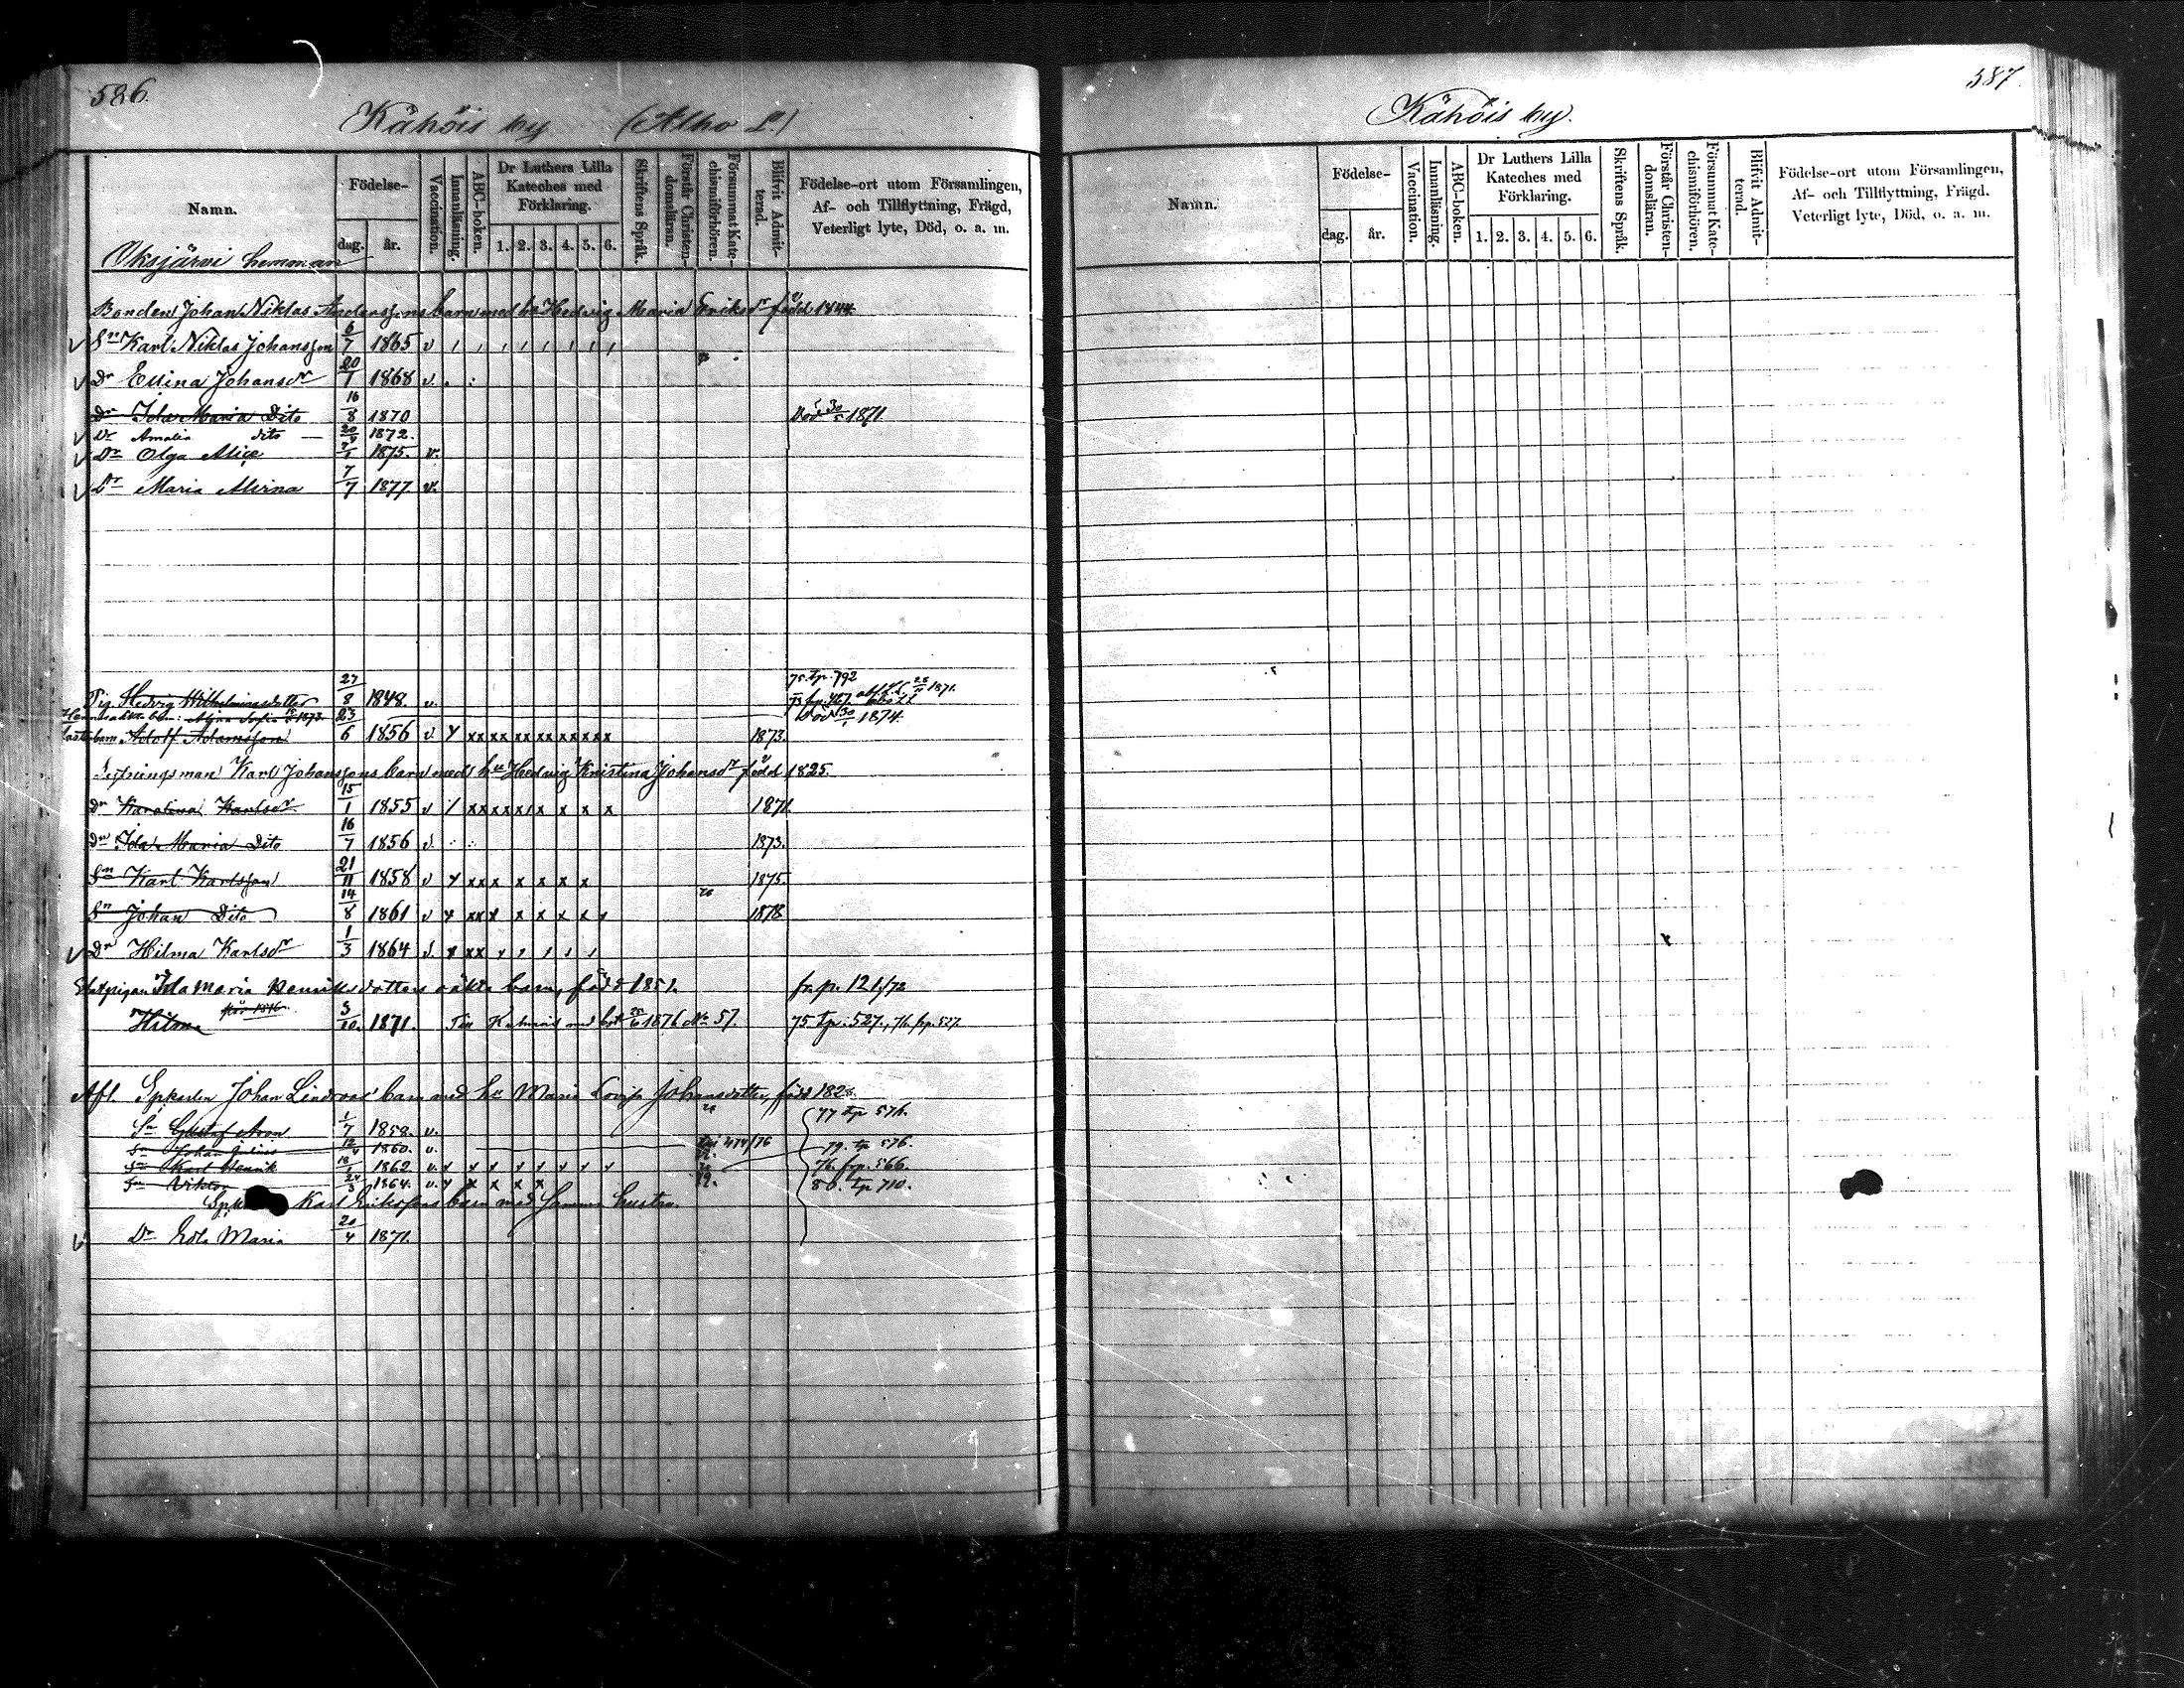 586.
Kähöis by (Alho Lä.)
Namn.
Födelse-
dag. år.
Vaccination.
Innanläsning.
ABC-boken.
Dr Luthers Lilla Kateches med Förklaring.
1. 2. 3. 4. 5. 6.
Skriftens Språk.
Förstår Christendomsläran.
Försummat Katechismiförhören.
Blifvit Admitterad.
Födelse-ort utom Församlingen,
Af- och Tillflyttning, Frägd,
Veterligt lyte, Död, o. a. m.
Oksjärvi hemman
Bonden Johan Niklas Anderssons barn med hu Hedvig Maria Eriksdr född 1844
Sn Karl Niklas Johansson 6/7 1865 v
Dr Elina Johansdr 20/1 1868 v.
Dr Ida Maria Dito 16/8 1870 Död 30/5 1871
Dr Amalia dito 20/4 1872.
Dr Olga Alice 1875. v.
Dr Maria Alvina 7/7 1877 v.
75. tp. 792
Pig. Hedvig Wilhelminasdotter 27/8 1848. v. 1871.
Död 30/1 1874.
Adolf Adamsson 23/6 1856 v x xx xx xx x x x x x x 1873.
Karl Johanssons barn med hu Hedvig Kristina Johansdr född 1825.
Dr Karolina Karlsdr 15/1 1855 v 1871.
Dr Ida Maria Dito 16/7 1856 v. 1873.
Sn Karl Karlsson 21/11 1858 v x xx x x x x x 1875.
Sn Johan Dito 14/8 1861 v x xx x x x x x 1878
Dr Hilma Karlsdr 1/3 1864 v. x xx
Ida Maria Henriksdotters oäkta barn, född 1851. fr. p. 121/72
Hilma 3/10. 1871. 1876 No 57. 75 tp. 527., 76. frp. 527.
Afl. Spkarlen Johan Lindroos' barn med hu Maria Lovisa Johansdotter, född
Sn Gustaf Aron 1/7 1858. v. 77 tp 576.
Sn Johan Julius 12/4 1860. v. 79. tp 576.
Sn Karl Henrik 1862 v. x x x x x x x x 76. frp. 566.
Sn Viktor 24/3 1864. v. x x x x 80. tp 710.
Karl Erikssons barn med samma hustru.
Dr Eola Maria 20/4 1871.
587.
Kähöis by.
Namn.
Födelse-
dag. år.
Vaccination.
Innanläsning.
ABC-boken.
Dr Luthers Lilla Kateches med Förklaring.
1. 2. 3. 4. 5. 6.
Skriftens Språk.
Förstår Christendomsläran.
Försummat Katechismiförhören.
Blifvit Admitterad.
Födelse-ort utom Församlingen,
Af- och Tillflyttning, Frägd.
Veterligt lyte, Död, o. a. m.